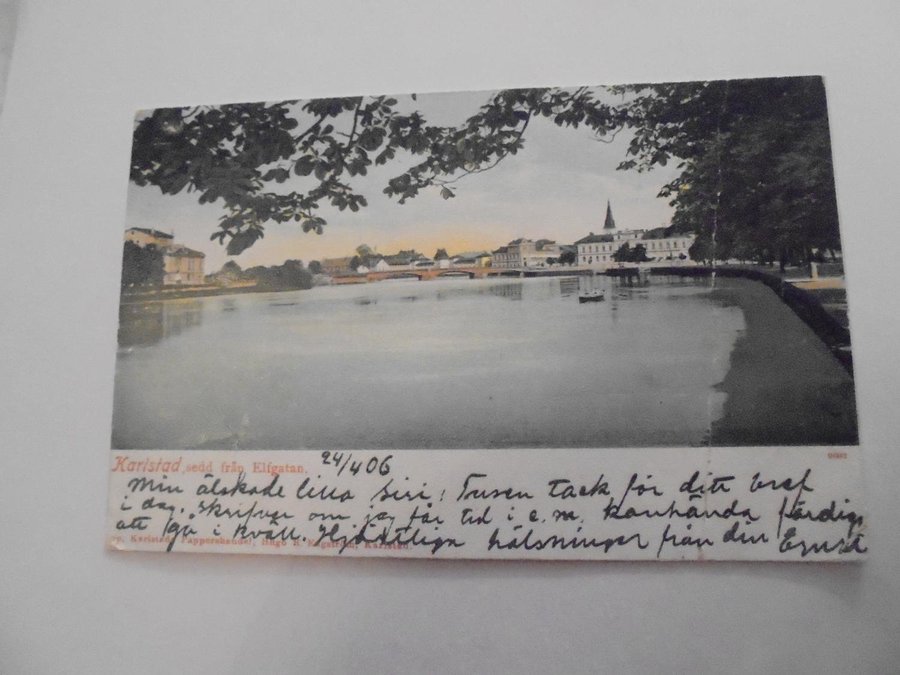 Karlstad, sedd från Elfgatan.
24/4 06
Min älskade lilla Siri! Tusen tack för ditt bref
i dag. Skrifver om jag får tid i e.m. kanhända färdig
att gå i kväll. Hjärtliga hälsningar från din Ernst
Karlstad, Pappershandel, Hugo Karlstad.